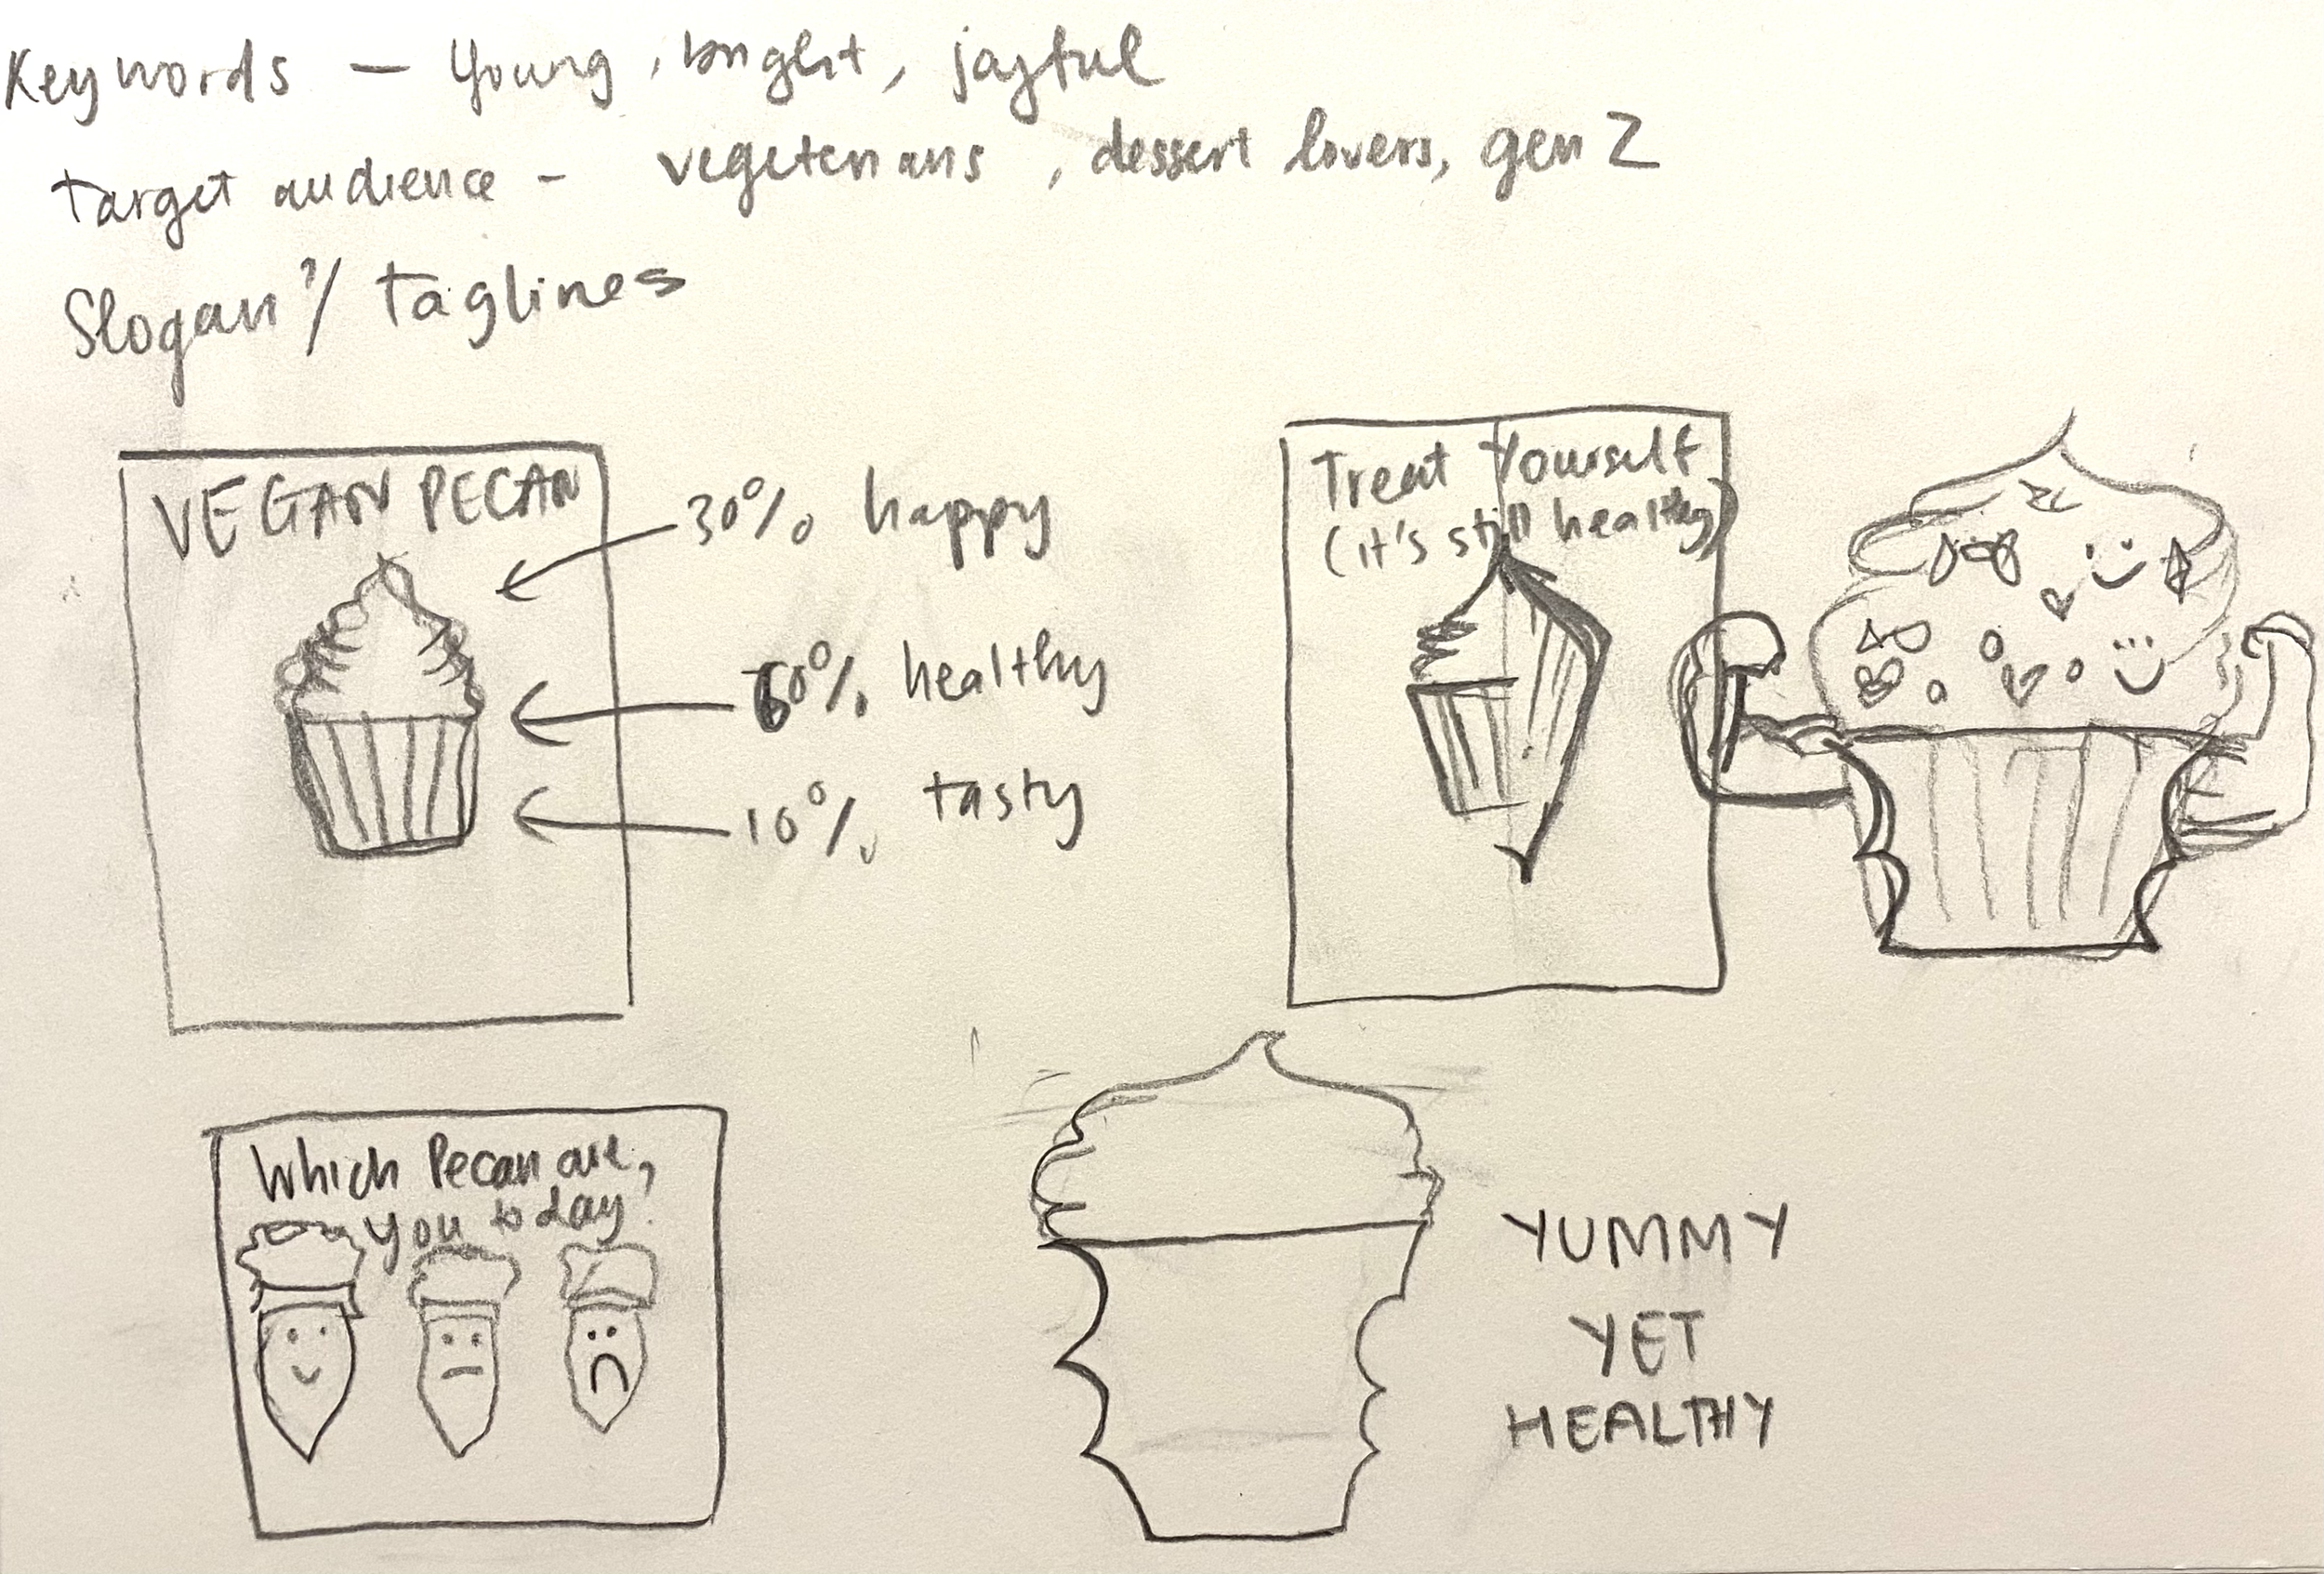 Keywords — Young, bright, joyful
target audience - vegeterians, dessert lovers, gen Z
Slogan?/ taglines
VEGAN PECAN
30% happy
60% healthy
10% tasty
Treat Yourself
(it's still healthy)
Which Pecan are,
you today?
YUMMY
YET
HEALTHY